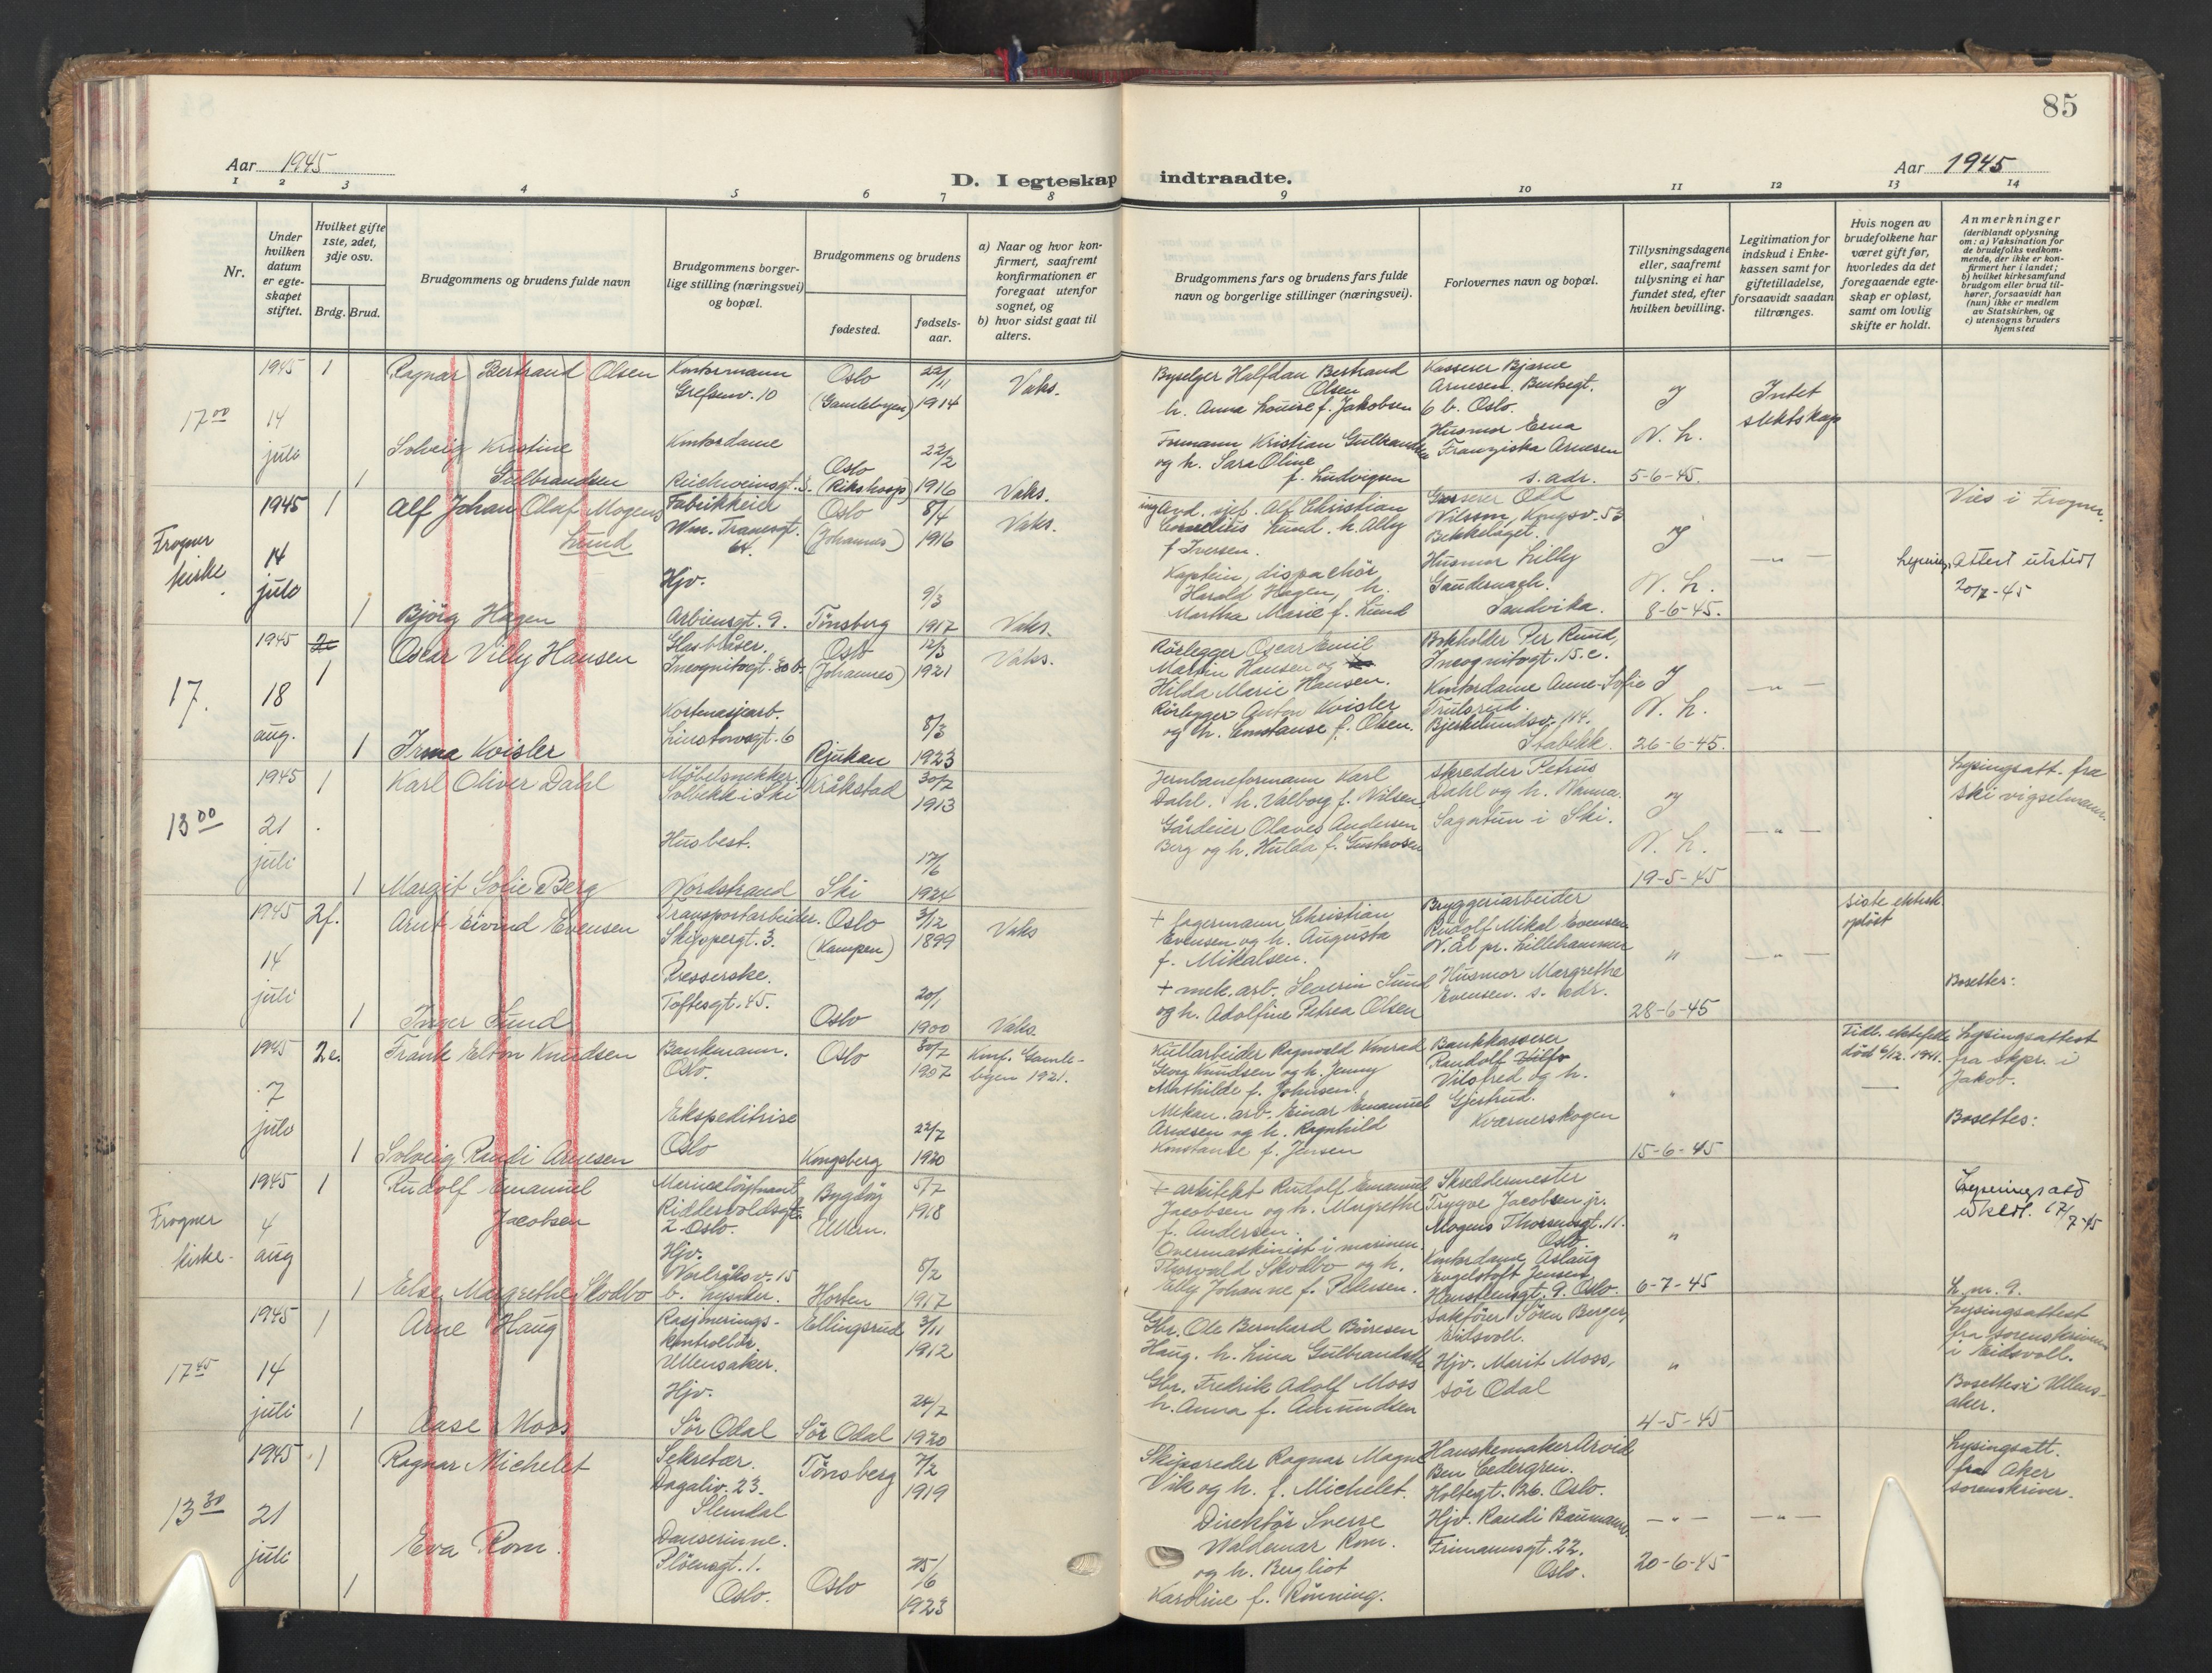 85
Aar 1945
D. I egteskap indtraadte.
Aar 1945
1 2 3 4 5 6 7 8 9 10 11 12 13 14
Nr.
Under hvilken datum er egteskapet stiftet.
Hvilket gifte 1ste, 2det, 3dje osv.
Brdg. Brud.
Brudgommens og brudens fulde navn
Brudgommens borgerlige stilling (næringsvei) og bopæl.
Brudgommens og brudens
fødested.
fødselsaar.
a) Naar og hvor konfirmert, saafremt konfirmationen er foregaat utenfor sognet, og
b) hvor sidst gaat til alters.
Brudgommens fars og brudens fars fulde navn og borgerlige stillinger (næringsvei).
Forlovernes navn og bopæl.
Tillysningsdagene eller, saafremt tillysning ei har fundet sted, efter hvilken bevilling.
Legitimation for indskud i Enkekassen samt for giftetilladelse, forsaavidt saadan tiltrænges.
Hvis nogen av brudefolkene har været gift før, hvorledes da det foregaaende egteskap er opløst, samt om lovlig skifte er holdt.
Anmerkninger
(deriblandt oplysning om: a) Vaksination for de brudefolks vedkommende, der ikke er konfirmert her i landet; b) hvilket kirkesamfund brudgom eller brud tilhører, forsaavidt han (hun) ikke er medlem av Statskirken, og c) utensogns bruders hjemsted
17 00
1945 14 juli
1
Ragnar Bertrand Olsen
Kontormann
Grefsenv. 10
Oslo (Gamlebyen)
22/11 1914
Vaks.
Byselger Halfdan Bertrand Olsen
h. Anna Louise f. Jakobsen
Kasserer Bjarne Arnesen. Benksegt. 6 b. Oslo.
Intet slektskap
1
Solveig Kristine Gulbrandsen
Kontordame
Oslo (Rikshosp)
22/2 1916
Vaks.
Formann Kristian Gulbrandsen
og h. Sara Oline f. Ludvigsen
Husmor Erna Franziska Arnesen
s. adr.
N. h.
5-6-45.
Frogner kirke
1945 14 juli
1
Alf Johan Olaf Mogens Lund
Fabrikkeier
Wm. Tranesgt.
Oslo (Johannes)
8/4 1916
Vaks.
Alf Christian Cornelius Lund. h. Ally f. Iversen.
Grosserer Odd Nilsson, Kongsv. 53 Bekkelaget.
Vies i Frogner.
1
Bjørg Hagen
Hjv.
Arbiensgt. 9.
Tønsberg
9/3 1917
Vaks.
Kaptein, dispachør Harald Hagen, h. Martha Marie f. Lund
Husmor Lilly
Sandvika.
N. h.
8-6-45.
Lysnings attest utstedt 20/7-45
17.
1945 18 aug.
1
Oscar Villy Hansen
Glasblåser.
Incognitogt. 30 b.
Oslo (Johannes)
12/3 1921
Vaks.
Rørlegger Oscar Emil Martin Hansen og
Hilda Marie Hansen.
Bokholder Per Ruud, Incognitogt. 15. c.
1
Irma Kvisler
Linstowsgt. 6
Rjukan
8/3 1923
Rørlegger Anton Kvisler
og h. Constanse f. Olsen.
Kontordame Anne-Sofie Trulsrud.
Bjerkelundsv. 114. Stabekk.
N. h.
26-6-45.
13 00
1945 21 juli
1
Karl Oliver Dahl
Møbelsnekker.
Solbekk i Ski
Kråkstad
30/7 1913
Jernbaneformann Karl Dahl. h. Valborg f. Nilsen
Skredder Petrus Dahl og h. Nanna.
Sagatun i Ski.
Lysingsatt. fra Ski vigselmann.
1
Margit Sofie Berg
Husbest.
Nordstrand
Ski
17/6 1924
Gårdeier Olaves Andersen Berg og h. Hulda f. Gustavsen
N. h.
19-5-45
1945 14 juli
2f.
Arnt Eivind Evensen
Transportarbeider.
Skippergt. 3.
Oslo (Kampen)
3/12 1899
Vaks
+ lagermann Christian Evensen og h. Augusta f. Mikalsen.
Bryggeriarbeider Rudolf Mikal Evensen
N. Ål pr. Lillehammer
siste ektesk opløst
1
Inger Lund
Presserske.
Toftesgt. 45.
Oslo
20/1 1900
Vaks.
+ mek. arb. Severin Lund
og h. Adolfine Petrea Olsen
Husmor Margrethe Evensen. s. adr.
28-6-45
Bosettes:
1945 7 juli
2 e.
Frank Elton Knudsen
Bankmann.
Oslo.
Oslo
30/7 1907
Konf. Gamlebyen 1921.
Kullarbeider Ragnvald Konrad Georg Knudsen og h. Jenny Mathilde f. Johnsen.
Bankkasserer Randolf Vilsfred og h. Gjertrud.
Kværnerskogen
Tidl. ektefelle død 6/12. 1941.
Lysingsattest fra skpr. i Jakob.
1
Solveig Randi Arnesen
Ekspeditrise
Oslo
Kongsberg
22/7 1920
Mekan. arb. Einar Emanuel Arnesen og h. Ragnhild Konstanse f. Jensen
15-6-45
Bosettes:
Frogner kirke.
1945 4 aug
1
Rudolf Emanuel Jacobsen
Marineløytnant
2 Oslo.
Bygdøy Ullern.
5/7 1918
+ arkitekt Rudolf Emanuel Jacobsen og h. Margrethe f. Andersen.
Skreddermester Trygve Jacobsen jr.
Mogens Thorsensgt. 11. Oslo.
Lysningsatt utstedt. 17/7-45
1
Else Margrethe Skodbo
Hjv.
b. Lysaker.
Horten
8/2 1917
Overmaskinist i marinen
Thorvald Skodbo og h.
Elly Johanne f. Pedersen.
Kontordame Aslaug Engelstoft Jensen
Hansteensgt. 9. Oslo.
6-7-45
L. nr. 9.
17 45
1945 14 juli
1
Arne Haug
Rasjoneringskontrollør
Ullensaker.
Ellingsrud
3/11 1912
Gbr. Ole Bernhard Børresen Haug. h. Lina Gulbrandsdtr
Sakfører Søren Berger, Eidsvoll.
Lysingsattest fra sorenskriveren i Eidsvoll.
1
Aase Moss
Hjv.
Sør Odal
Sør Odal
24/7 1920
Gbr. Fredrik Adolf Moss
h. Anna f. Amundsen
Hjv. Marit Moss, Sør Odal
4-5-45
Bosettes i Ullensaker.
13 30
1945 21 juli
1
Ragnar Michelet
Sekretær.
Dagaliv. 23.
Slemdal
Tønsberg
7/2 1919
Skipsreder Ragnar Magne Vik og h. f. Michelet.
Hanskemaker Arvid Ben Cedergren.
Holtegt. 26. Oslo.
Lysingsatt. fra Aker sorenskriver.
1
Eva Rom.
Danserinne.
Pløensgt. 1. Oslo.
Oslo
25/6 1923
Direktør Sverre Waldemar Rom.
og h. Bergliot Karoline f. Rønning.
Hjv. Randi Baumann.
Frimannsgt. 22. Oslo.
20-6-45